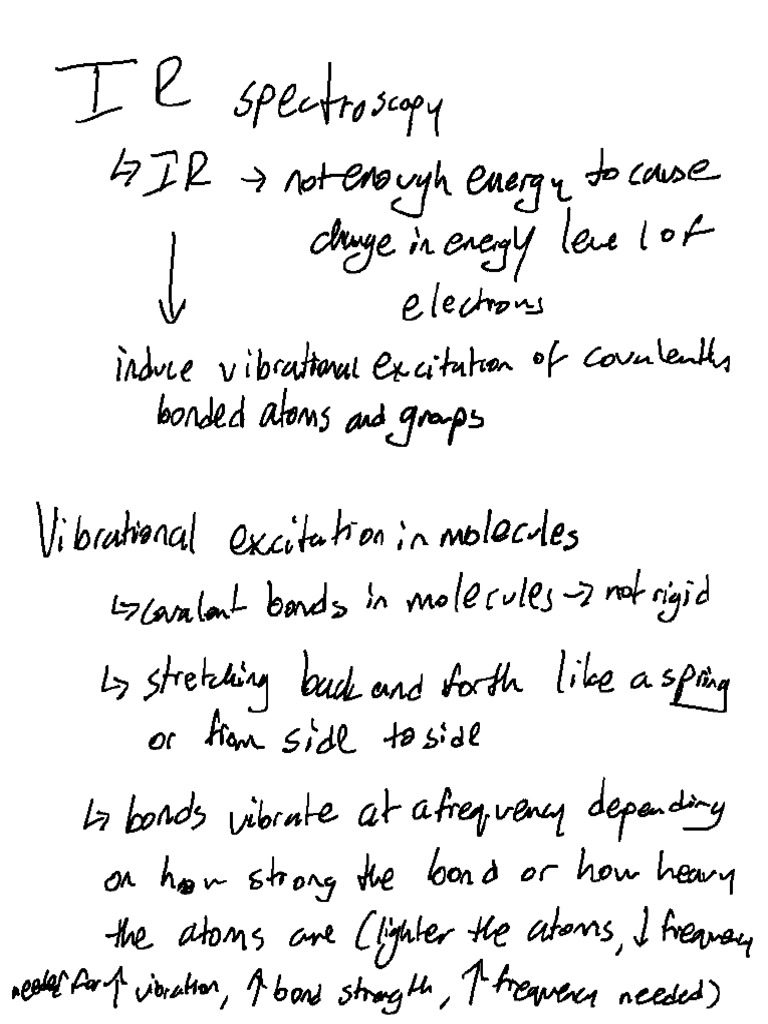 IR spectroscopy
↳ IR → not enough energy to cause
change in energy level of
electrons
↓
induce vibrational excitation of covalently
bonded atoms and groups
Vibrational excitation in molecules
↳ covalent bonds in molecules → not rigid
↳ stretching back and forth like a spring
or from side to side
↳ bonds vibrate at a frequency depending
on how strong the bond or how heavy
the atoms are (lighter the atoms, ↓ frequency
needed for ↑ vibration, ↑ bond strength, ↑ frequency needed)